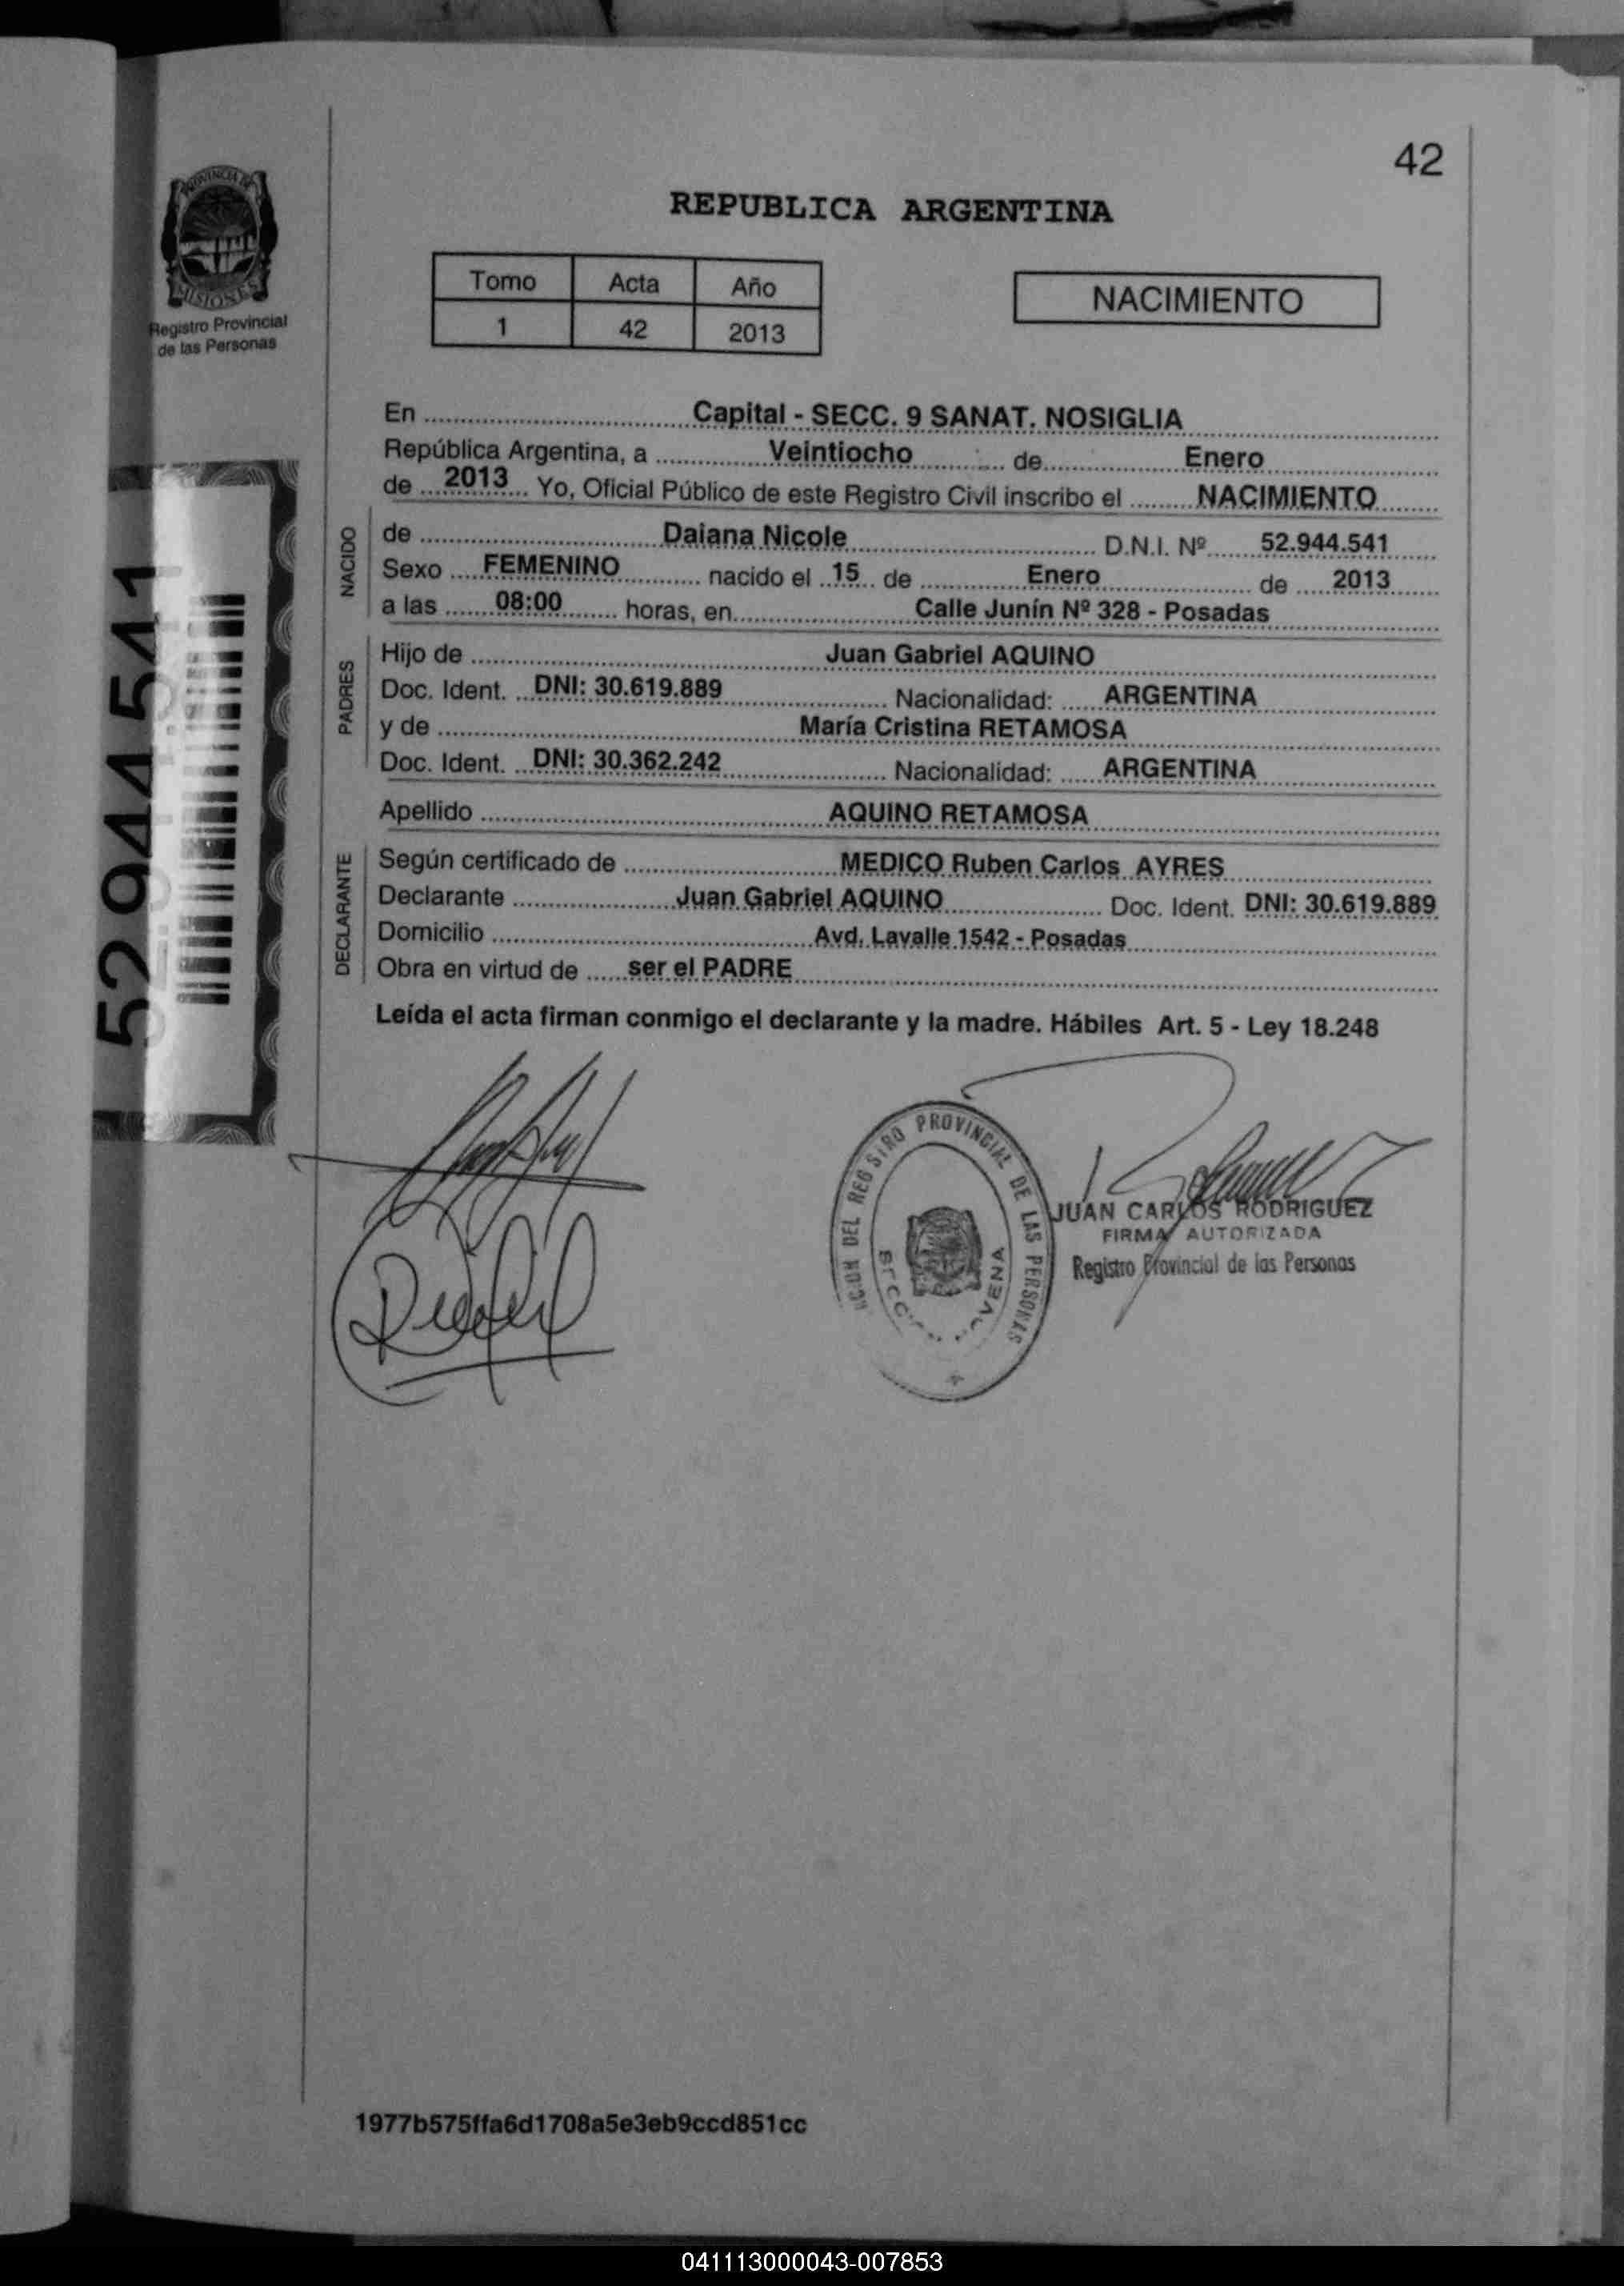 42
PROVINCIA DE
MISIONES
Registro Provincial
de las Personas
REPUBLICA ARGENTINA
Tomo Acta Año
1 42 2013
NACIMIENTO
En Capital - SECC. 9 SANAT. NOSIGLIA
República Argentina, a Veintiocho de Enero
de 2013 Yo, Oficial Público de este Registro Civil inscribo el NACIMIENTO
NACIDO
de Daiana Nicole D.N.I. Nº 52.944.541
Sexo FEMENINO nacido el 15 de Enero de 2013
a las 08:00 horas, en Calle Junín Nº 328 - Posadas
PADRES
Hijo de Juan Gabriel AQUINO
Doc. Ident. DNI: 30.619.889 Nacionalidad: ARGENTINA
y de María Cristina RETAMOSA
Doc. Ident. DNI: 30.362.242 Nacionalidad: ARGENTINA
Apellido AQUINO RETAMOSA
DECLARANTE
Según certificado de MEDICO Ruben Carlos AYRES
Declarante Juan Gabriel AQUINO Doc. Ident. DNI: 30.619.889
Domicilio Avd. Lavalle 1542 - Posadas
Obra en virtud de ser el PADRE
Leída el acta firman conmigo el declarante y la madre. Hábiles Art. 5 - Ley 18.248
52944541
DEL REGISTRO PROVINCIAL DE LAS PERSONAS
JUAN CARLOS RODRIGUEZ
FIRMA AUTORIZADA
Registro Provincial de las Personas
1977b575ffa6d1708a5e3eb9ccd851cc
041113000043-007853